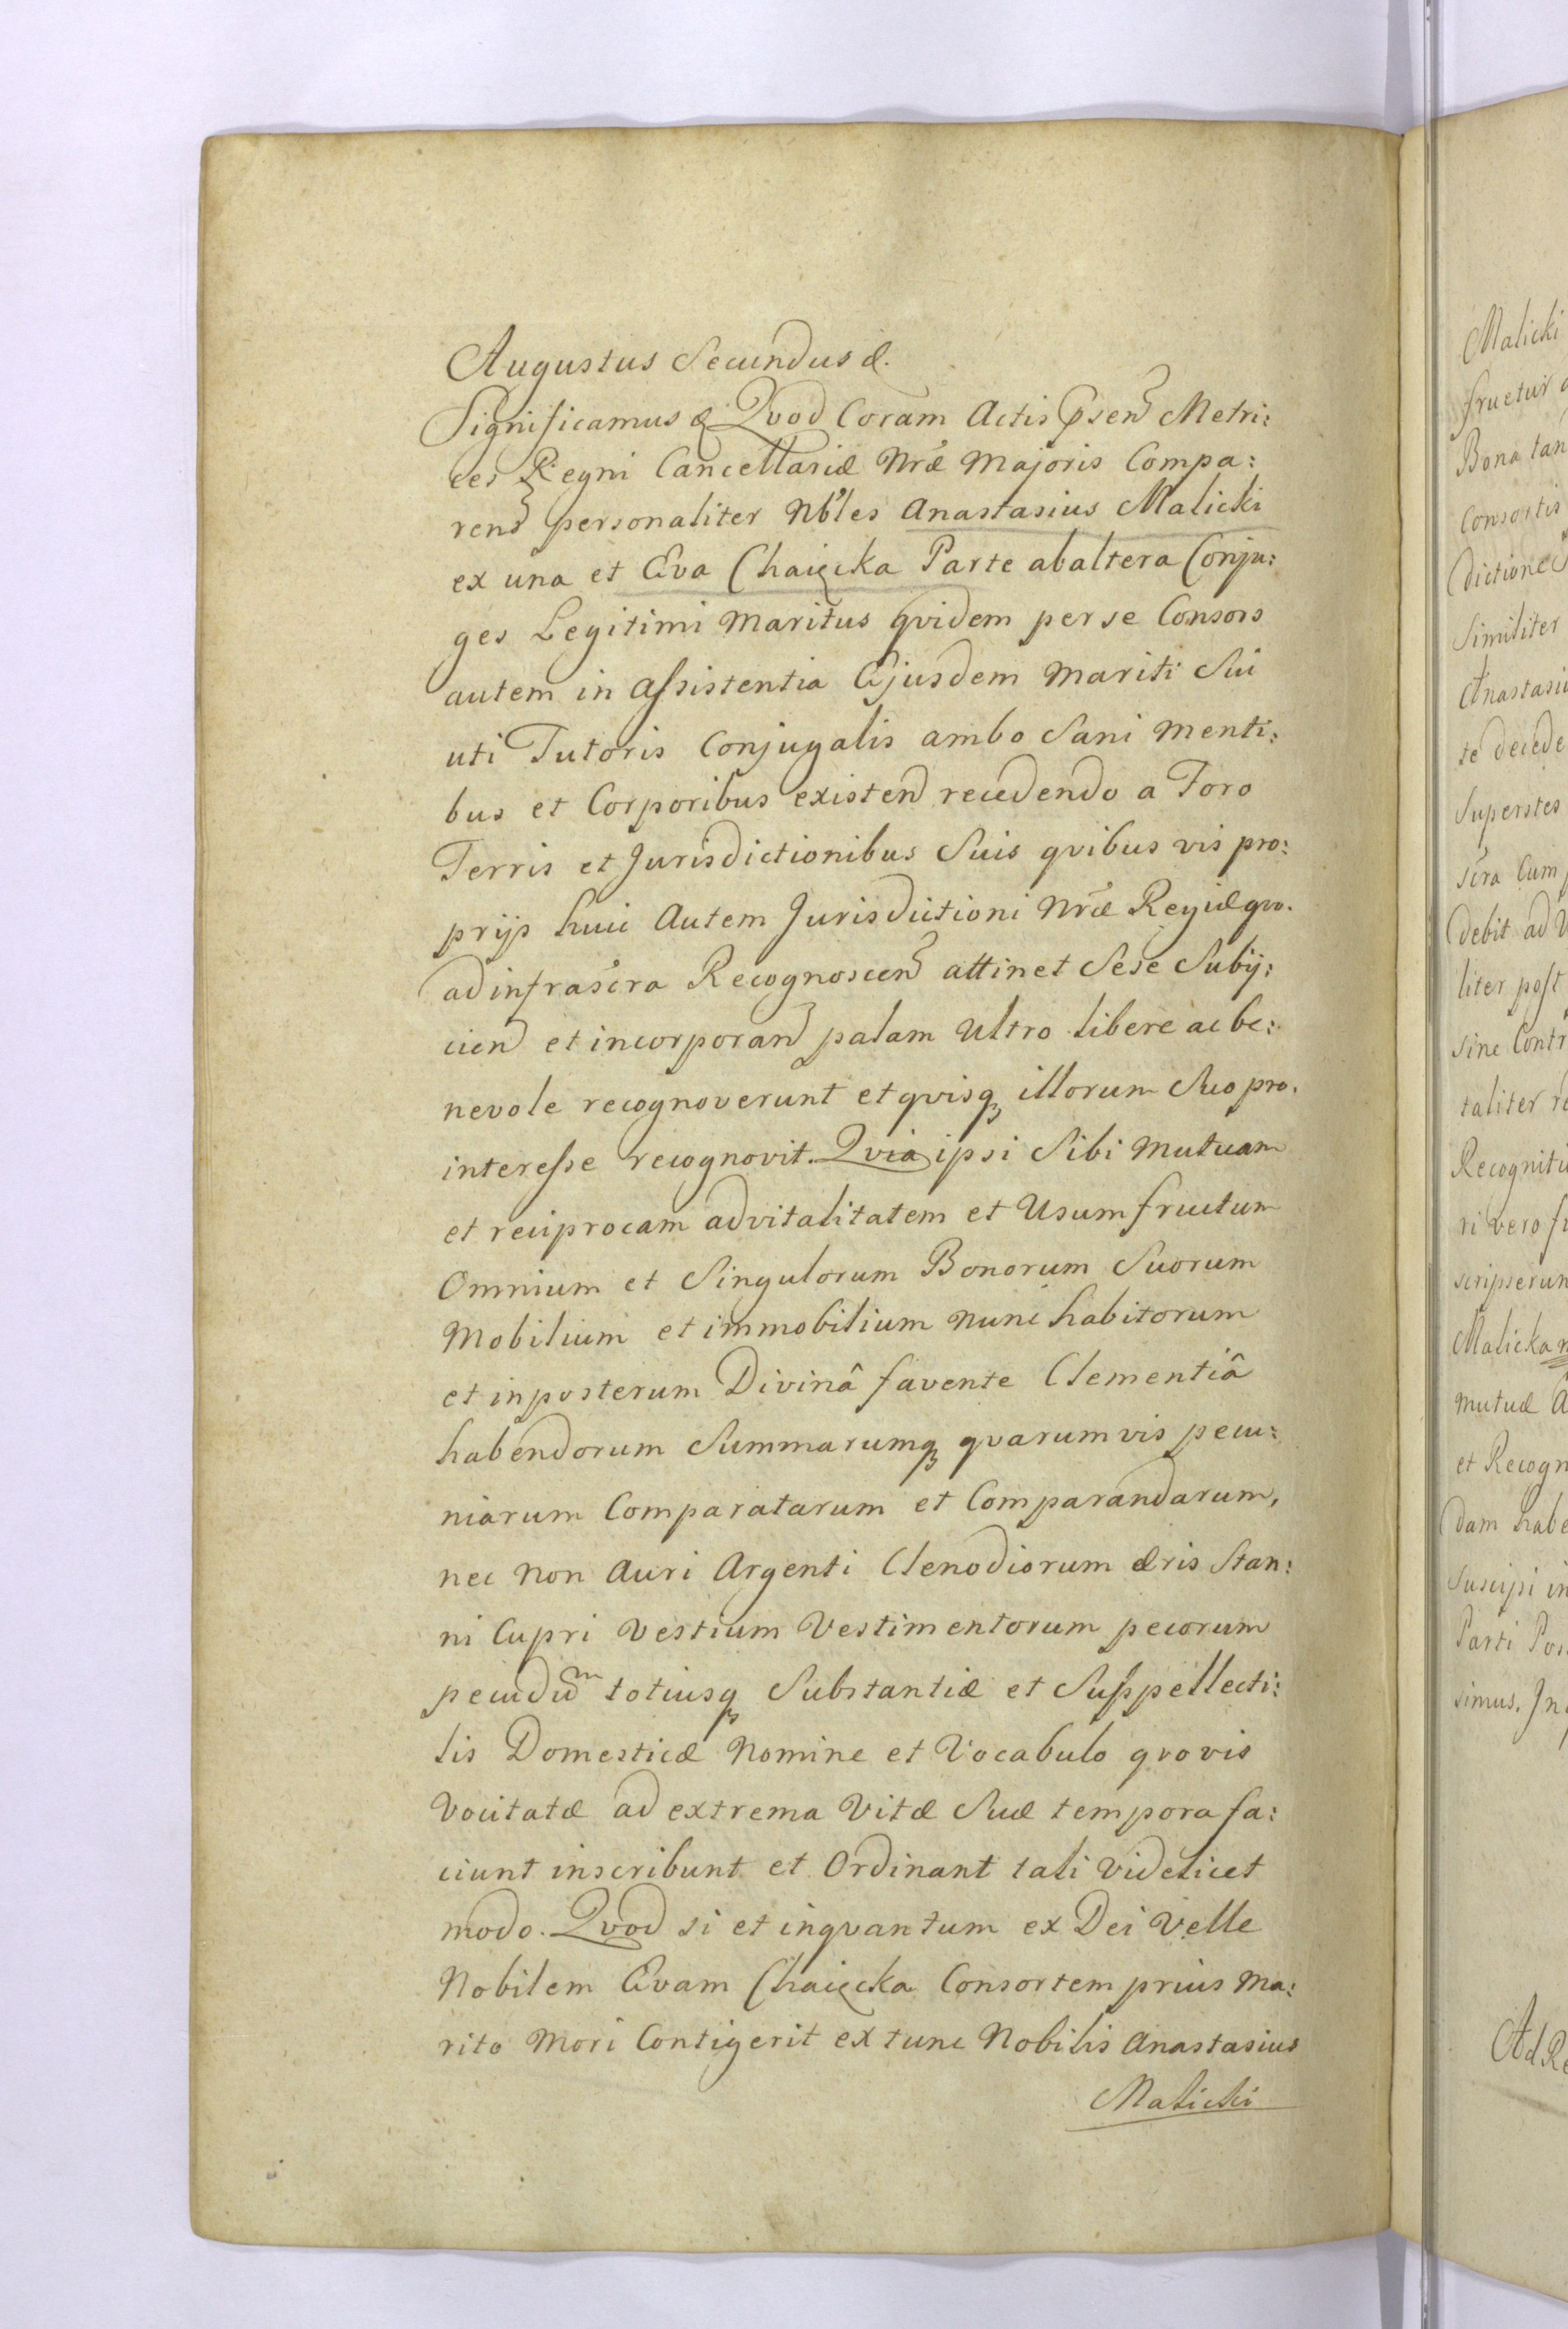 Augustus Secundus &.
Significamus & Qvod Coram Actis Psen Metri:
ces Regni Cancellariæ Nræ Majoris Compa:
rens personaliter Nbles Anastasius Malicki
ex una et Eva Chaięcka Parte abaltera Conju:
ges Legitimi Maritus qvidem per se Consors
autem in assistentia Ejusdem Mariti Sui
uti Tutoris Conjugalis ambo Sani Menti:
bus et Corporibus existen recedendo a Foro
Terris et Jurisdictionibus Suis qvibus vis pro:
prijs huic Autem Jurisdictioni Nræ Regiæ qvo.
ad infrascra Recognoscen attinet Sese Subij:
cien et incorporan palam Ultro libere ac be:
nevole recognoverunt et qvisq illorum Suo pro.
interesse recognovit. Qvia ipsi Sibi Mutuam
et reciprocam advitalitatem et Usumfructum
Omnium et Singulorum Bonorum Suorum
Mobilium et immobilium nunc habitorum
et inposterum Divinâ favente Clementiâ
habendorum Summarumq qvarumvis pecu:
niarum Comparatarum et Comparandarum,
nec non Auri Argenti Clenodiorum æris Stan:
ni Cupri Vestium Vestimentorum pecorum
pecudum totiusq Substantiæ et Suppellecti:
lis Domesticæ Nomine et Vocabulo qvovis
Vocitatæ ad extrema Vitæ Suæ tempora fa:
ciunt inscribunt et Ordinant tali Videlicet
modo. Qvod si et inqvantum ex Dei Velle
Nobilem Evam Chaięcka Consortem prius Ma:
rito Mori Contigerit ex tunc Nobilis Anastasius
Malicki
Malicki
fruetur
Bona tan
Consortis
dictione
Similiter
Anastasiu
te decede
Superstes
scra Cum
debit ad
liter post
sine Contr
taliter re
Recognitu
ri vero
scripserun
Malicka
mutuæ
et Recogn
dam habe
Suscipi in
Parti
simus.
Ad Re